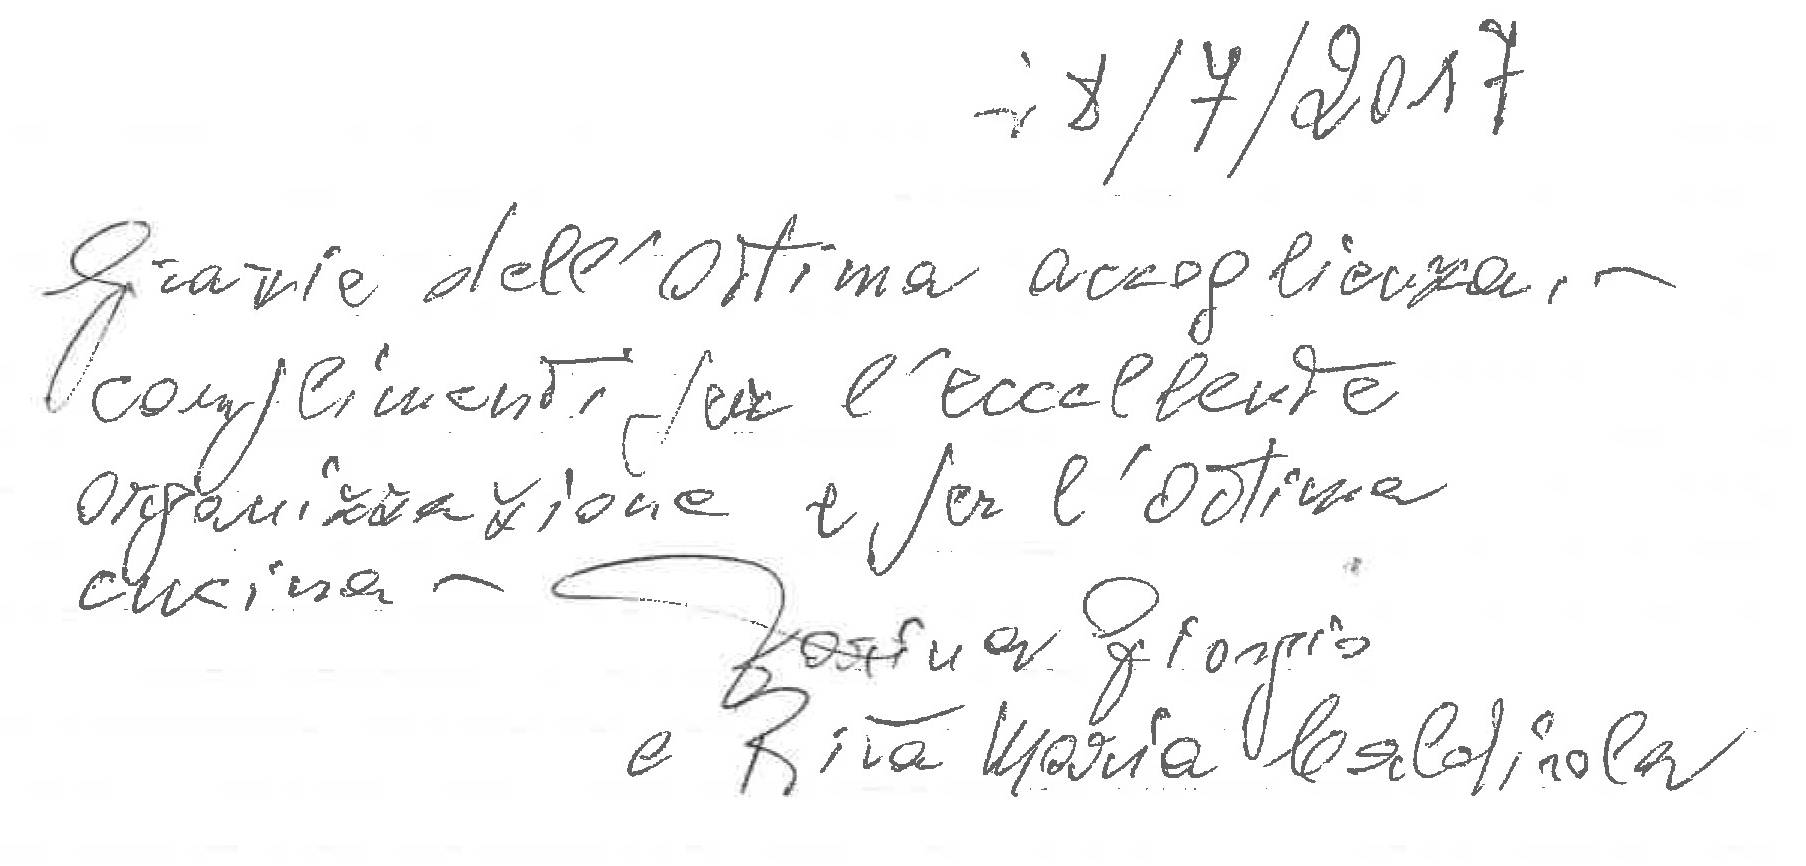 18/7/2017
Grazie dell'ottima accoglienza. -
complimenti per l'eccellente
organizzazione e per l'ottima
cucina -
Giorgio
e Rita Maria Caldirola